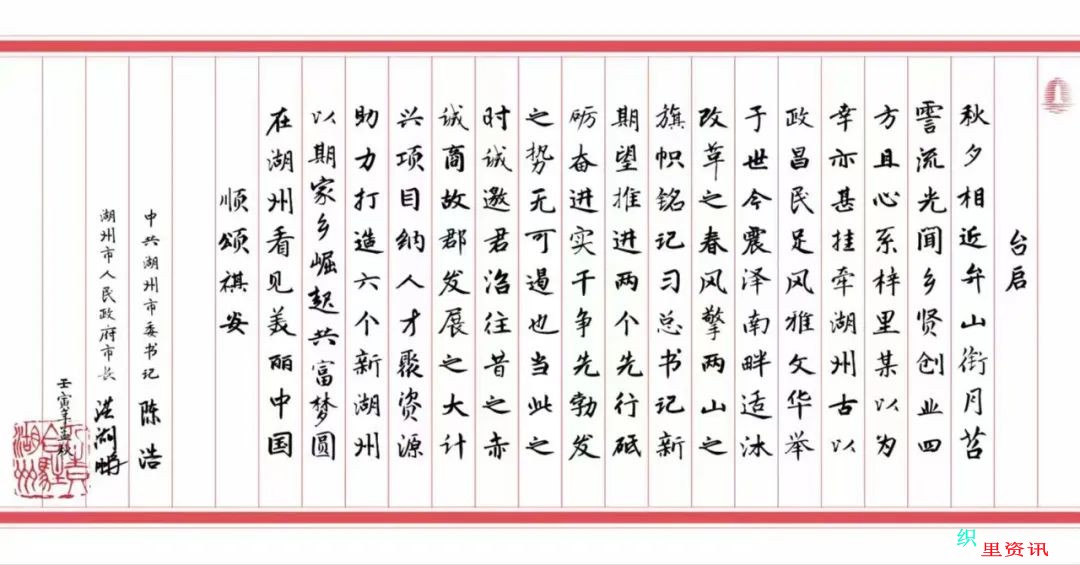 台启
秋夕相近弁山衔月苕
霅流光闻乡贤创业四
方且心系梓里某以为
幸亦甚挂牵湖州古以
政昌民足风雅文华举
于世今震泽南畔适沐
改革之春风擎两山之
旗帜铭记习总书记新
期望推进两个先行砥
砺奋进实干争先勃发
之势无可遏也当此之
时诚邀君洽往昔之赤
诚商故郡发展之大计
兴项目纳人才聚资源
助力打造六个新湖州
以期家乡崛起共富梦圆
在湖州看见美丽中国
顺颂祺安
中共湖州市委书记 陈浩
湖州市人民政府市长 洪湖鹏
壬寅年孟秋
织里资讯